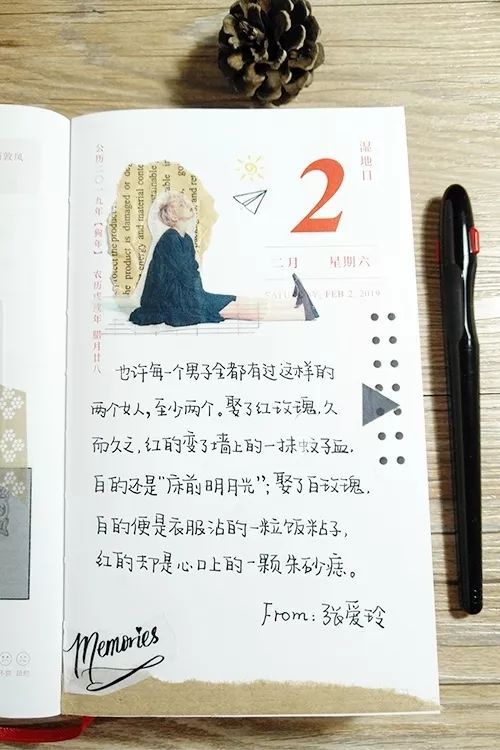 敦风
公历二〇一九年【狗年】 农历戊戌年 腊月廿八
湿地日
2
二月 星期六
SATURDAY, FEB 2, 2019
product is damaged or de
energy and material conte
也许每一个男子全都有过这样的
两个女人，至少两个。娶了红玫瑰，久
而久之，红的变了墙上的一抹蚊子血，
白的还是“床前明月光”；娶了白玫瑰，
白的便是衣服沾的一粒饭粘子，
红的却是心口上的一颗朱砂痣。
From：张爱玲
Memories